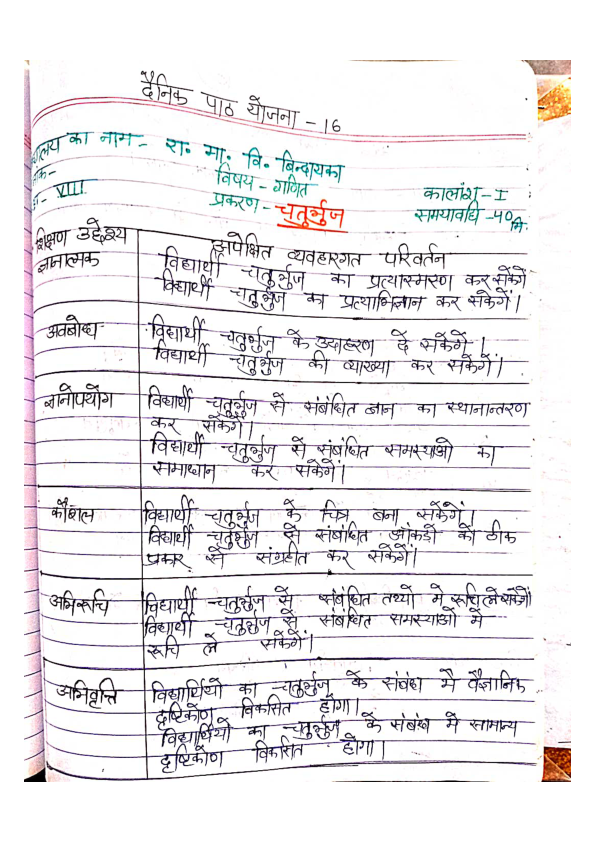 दैनिक पाठ योजना - 16
का नाम - रा. मा. वि. बिन्दायका
विषय - गणित
कालांश - I
- VIII
प्रकरण - चतुर्भुज
समयावधि - 40 मि.
शिक्षण उद्देश्य
अपेक्षित व्यवहारगत परिवर्तन
ज्ञानात्मक
विद्यार्थी चतुर्भुज का प्रत्यास्मरण कर सकेंगें
विद्यार्थी चतुर्भुज का प्रत्याभिज्ञान कर सकेंगें।
अवबोध
विद्यार्थी चतुर्भुज के उदाहरण दे सकेंगें।
विद्यार्थी चतुर्भुज की व्याख्या कर सकेंगें।
ज्ञानोपयोग
विद्यार्थी चतुर्भुज से संबंधित ज्ञान का स्थानान्तरण
कर सकेंगें।
विद्यार्थी चतुर्भुज से संबंधित समस्याओं का
समाधान कर सकेंगें।
कौशल
विद्यार्थी चतुर्भुज के चित्र बना सकेंगें।
विद्यार्थी चतुर्भुज से संबंधित आंकडों को ठीक
प्रकार से संग्रहीत कर सकेंगें।
अभिरूचि
विद्यार्थी चतुर्भुज से संबंधित तथ्यों मे रूचि ले सकेंगें।
विद्यार्थी चतुर्भुज से संबंधित समस्याओं मे
रूचि ले सकेंगें।
अभिवृत्ति
विद्यार्थियों का चतुर्भुज के संबंध मे वैज्ञानिक
दृष्टिकोण विकसित होगा।
विद्यार्थियों का चतुर्भुज के संबंध मे सामान्य
दृष्टिकोण विकसित होगा।